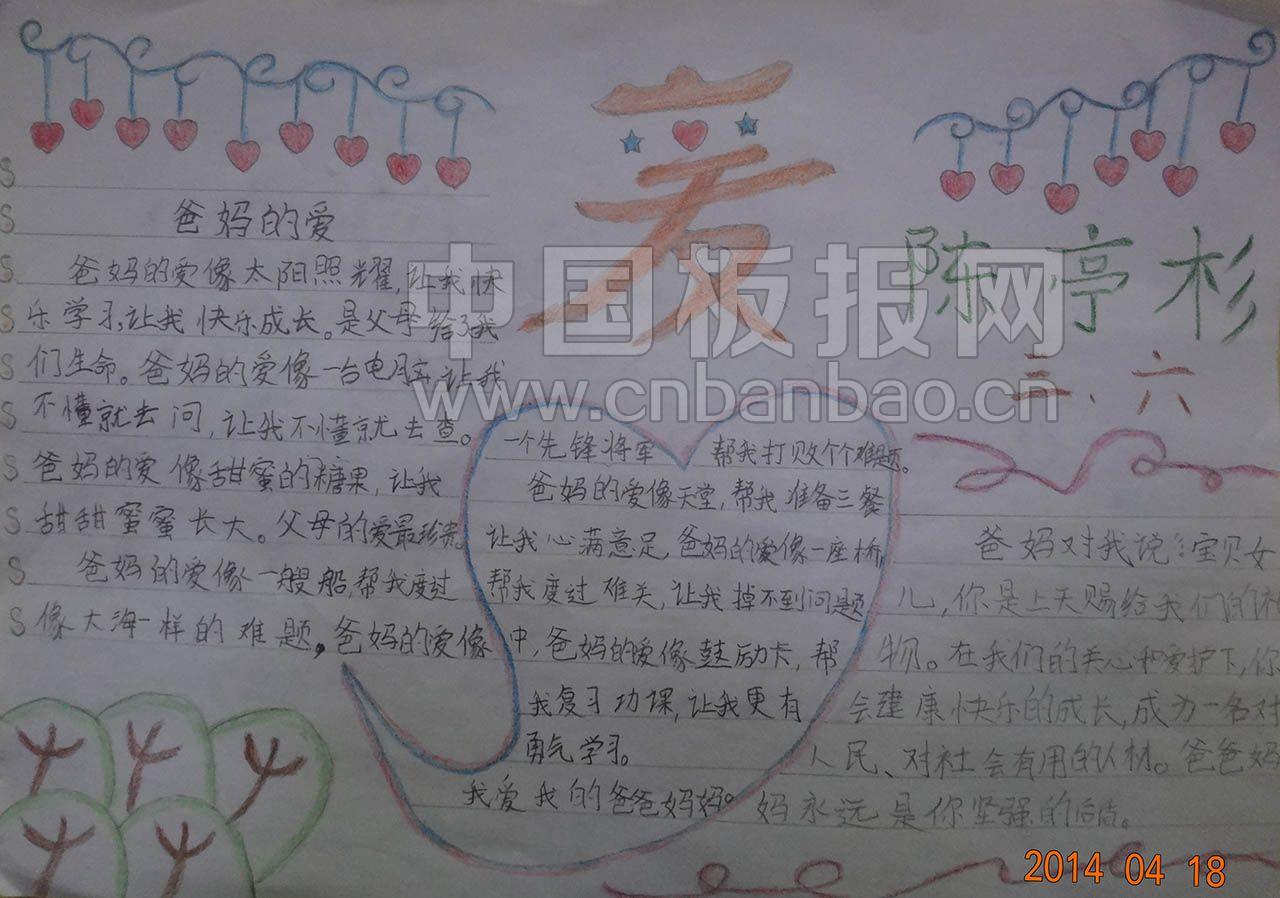 爱
陈停杉
三、六
爸妈的爱
爸妈的爱像太阳照耀，让我快
乐学习，让我快乐成长。是父母给了我
们生命。爸妈的爱像一台电脑，让我
不懂就去问，让我不懂就去查。
爸妈的爱像甜蜜的糖果，让我
甜甜蜜蜜长大。父母的爱最珍贵。
爸妈的爱像一艘船，帮我度过
像大海一样的难题。爸妈的爱像
一个先锋将军 帮我打败个个难题。
爸妈的爱像天堂，帮我准备三餐
让我心满意足 爸妈的爱像一座桥
帮我度过难关，让我掉不到问题
中，爸妈的爱像鼓励卡，帮
我复习功课，让我更有
勇气学习。
我爱我的爸爸妈妈。
爸妈对我说：宝贝女
儿，你是上天赐给我们的礼
物。在我们的关心和爱护下，你
会建康快乐的成长，成为一名对
人民、对社会有用的人材。爸爸妈
妈永远是你坚强的后盾。
中国板报网
www.cnbanbao.cn
2014 04 18